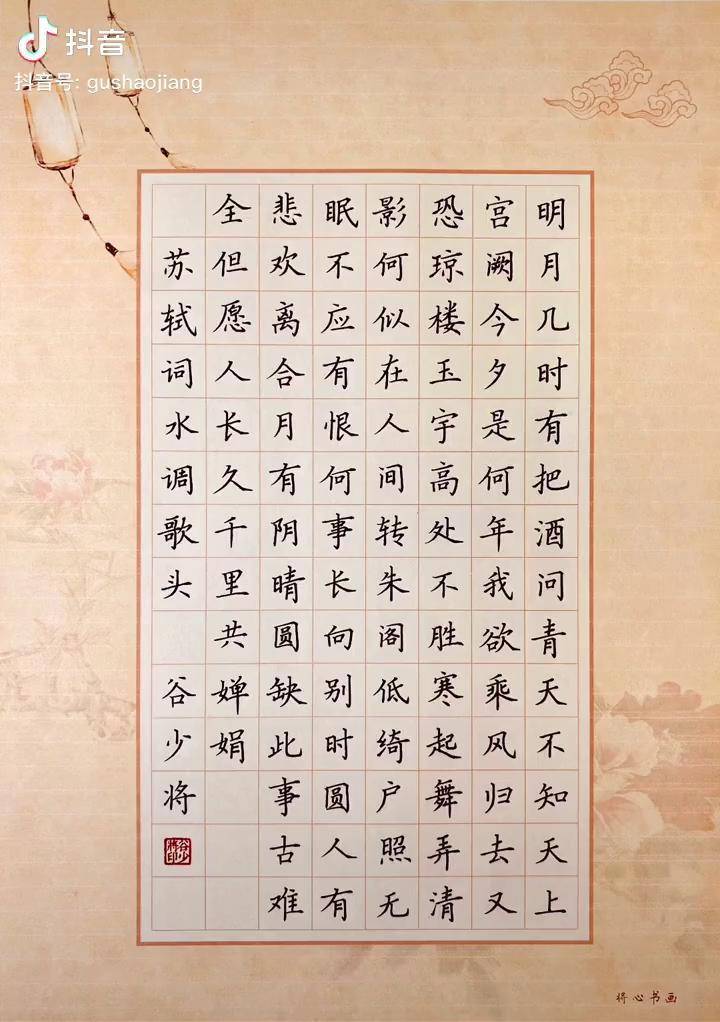 抖音
抖音号: gushaojiang
明月几时有把酒问青天不知天上
宫阙今夕是何年我欲乘风归去又
恐琼楼玉宇高处不胜寒起舞弄清
影何似在人间转朱阁低绮户照无
眠不应有恨何事长向别时圆人有
悲欢离合月有阴晴圆缺此事古难
全但愿人长久千里共婵娟
苏轼词水调歌头 谷少将
将心书画